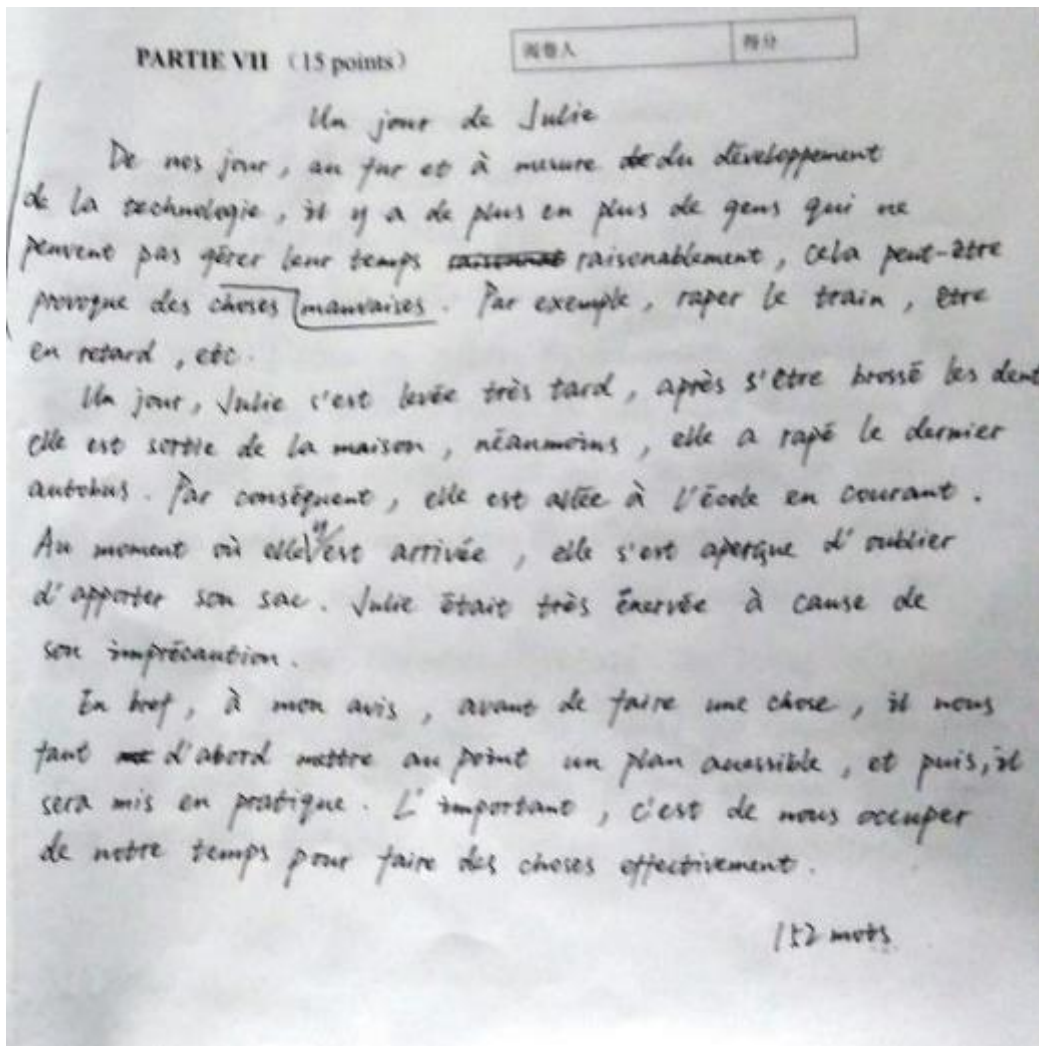 PARTIE VII （15 points） 阅卷人 得分
Un jour de Julie
De nos jour, au fur et à mesure du développement
de la technologie, il y a de plus en plus de gens qui ne
peuvent pas gérer leur temps raisonablement, cela peut-être
provoque des choses mauvaises. Par exemple, raper le train, être
en retard, etc.
Un jour, Julie s'est levée très tard, après s'être brossé les dent
elle est sortie de la maison, néanmoins, elle a rapé le dernier
autobus. Par conséquent, elle est allée à l'école en courant.
Au moment où elle est arrivée, elle s'est aperçue d'oublier
d'apporter son sac. Julie était très énervée à cause de
son imprécaution.
En bref, à mon avis, avant de faire une chose, il nous
faut d'abord mettre au point un plan accessible, et puis, il
sera mis en pratique. L'important, c'est de nous occuper
de notre temps pour faire des choses effectivement.
152 mots